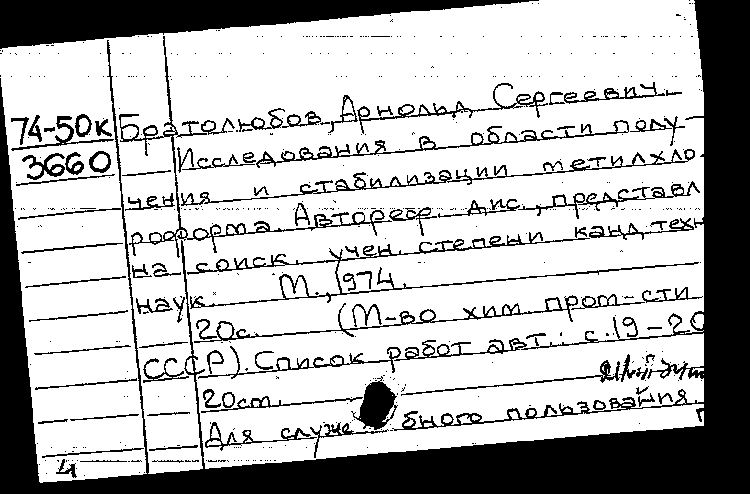 74-50к Братолюбов, Арнольд Сергеевич.
3660 Исследования в области полу-
чения и стабилизации метилхло-
роформа. Автореф. дис., представл
на соиск. учен. степени канд. техн
наук. М., 1974.
20с. (М-во хим. пром-сти
СССР). Список работ авт.: с.19-20
20см.
Для служебного пользования.
4